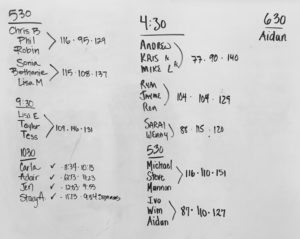 530
Chris B
Phil
Robin
116 · 95 · 129
Sonia
Bethanie
Lisa M
115 · 108 · 137
9:30
Lisa E
Taylor
Tess
109 · 116 · 131
1030
Carla ✓
Adair ✓
Jen ✓
Stacy A ✓
4:30
ANDREW
KRIS N
MIKE L
77 · 90 · 140
Ryan
Jayme
Ren
104 · 104 · 129
SARAI
WENDY
88 · 115 · 120
530
Michael
Steve
Mannon
116 · 110 · 151
Ivo
Wim
Aidan
87 · 110 · 127
630
Aidan